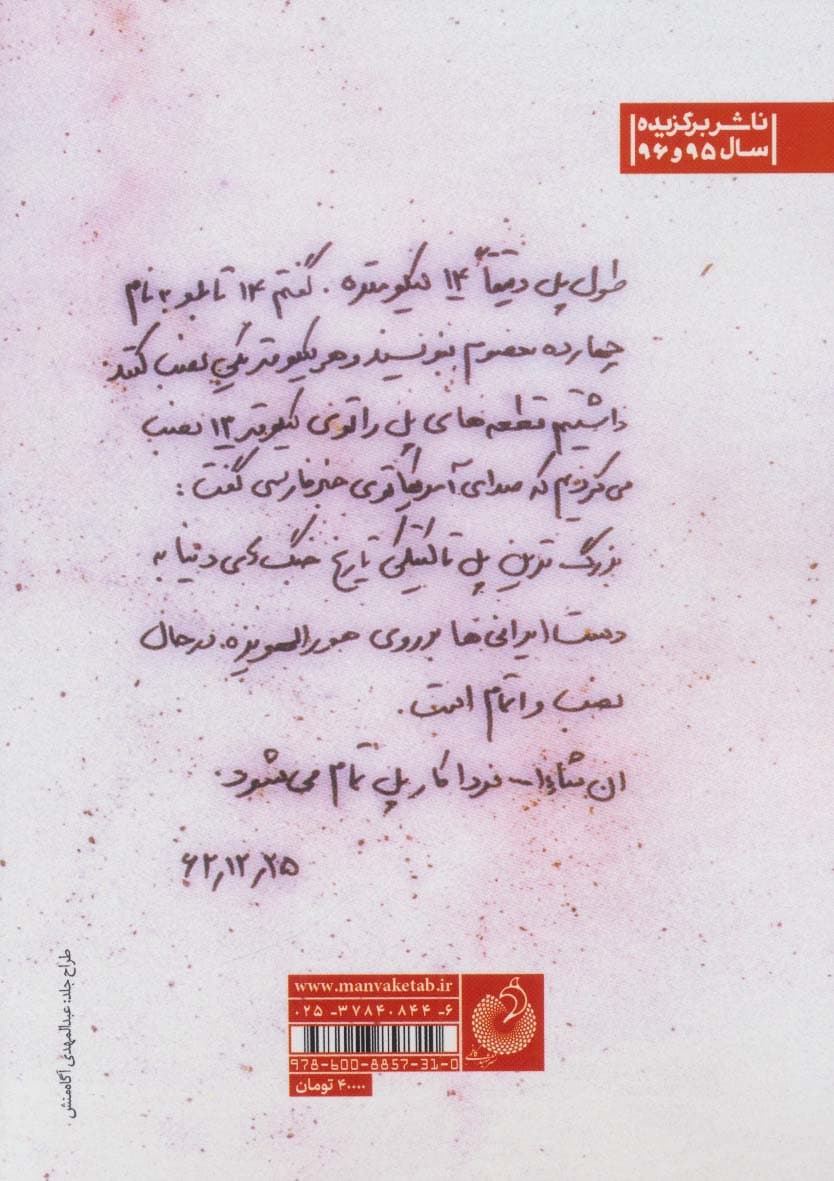 ناشر برگزیده
سال ۹۵ و ۹۶
طول پل دقیقاً ۱۴ کیلومتره. گفتم ۱۴ تابلو به نام
چهارده معصوم بنویسند و هر یک کیلومتر یکی نصب کنند
داشتیم قطعه‌های پل را توی کیلومتر ۱۳ نصب
می‌کردیم که صدای آمریکا توی خبر فارسی گفت:
بزرگ‌ترین پل تاکتیکی تاریخ جنگ‌های دنیا به
دست ایرانی‌ها بر روی هورالهویزه، در حال
نصب و اتمام است.
ان شاءا... فردا کار پل تمام می‌شود.
۶۲٫۱۲٫۲۵
طراح جلد: عبدالمهدی آگاه‌منش
www.manvaketab.ir
۰۲۵ -۳۷۸۴۰۸۴۴ -۶
978-600-8857-31-0
۴۰۰۰۰ تومان